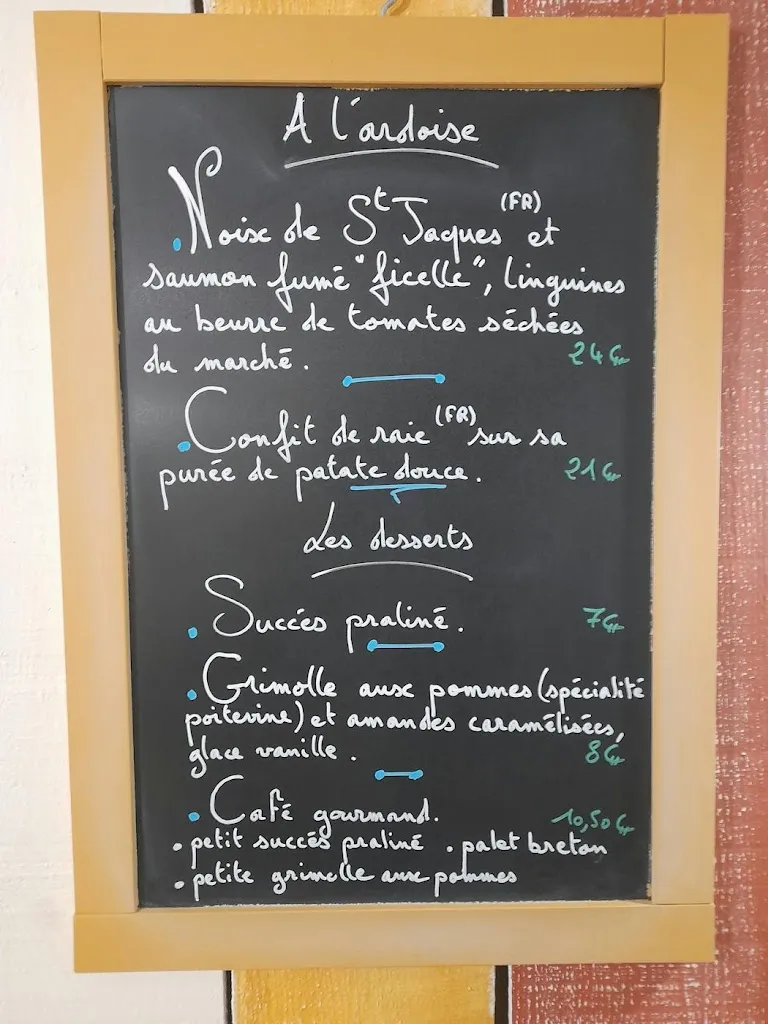 A l'ardoise
. Noix de St Jaques (FR) et
saumon fumé "ficelle", linguines
au beurre de tomates séchées
du marché. 24€
. Confit de raie (FR) sur sa
purée de patate douce. 21€
Les desserts
. Succés praliné. 7€
. Grimolle aux pommes (spécialité
poitevine) et amandes caramélisées,
glace vanille. 8€
. Café gourmand. 10,50€
. petit succés praliné . palet breton
. petite grimolle aux pommes